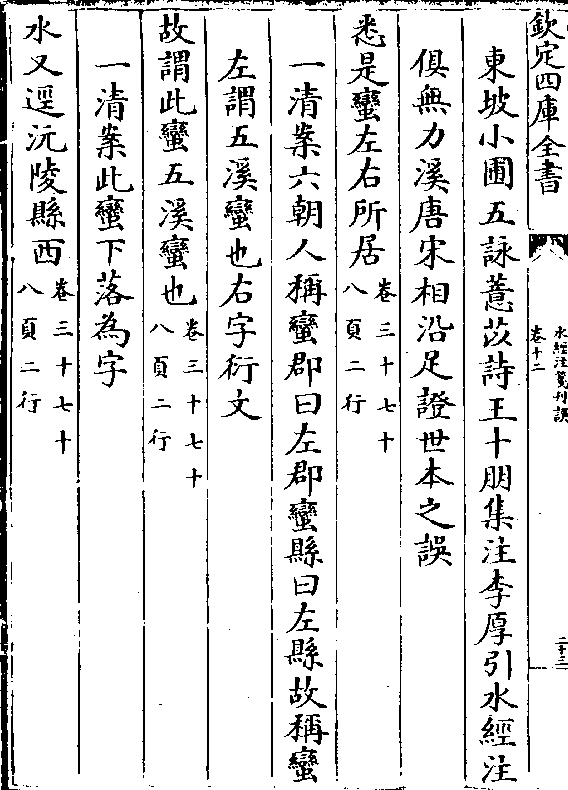 欽定四庫全書
水經注箋刊誤
卷十二
二十三
東坡小圃五詠薏苡詩王十朋集注李厚引水經注
俱無力溪唐宋相沿足證世本之誤
悉是蠻左右所居卷三十七十
八頁二行
一清案六朝人稱蠻郡曰左郡蠻縣曰左縣故稱蠻
左謂五溪蠻也右字衍文
故謂此蠻五溪蠻也卷三十七十
八頁二行
一清案此蠻下落為字
水又逕沅陵縣西卷三十七十
八頁二行